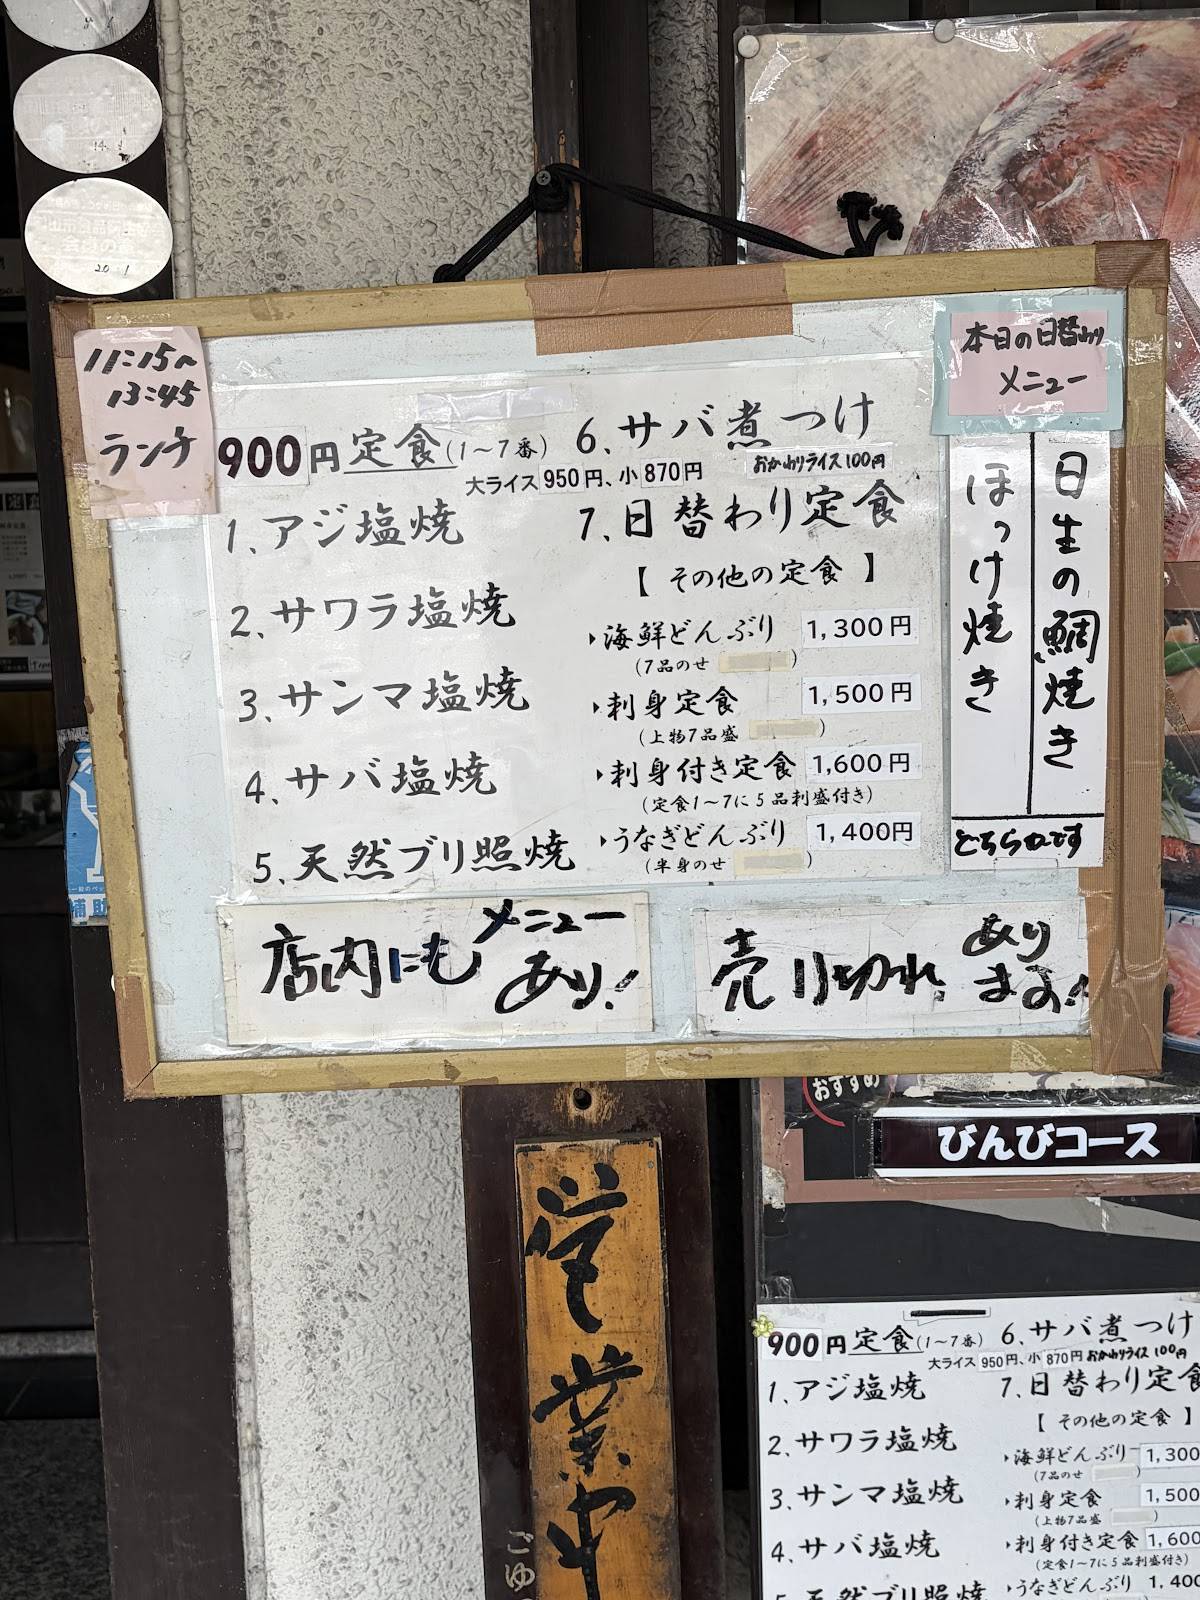 11:15〜
13:45
ランチ
900円定食(1〜7番)
大ライス950円、小870円
1、アジ塩焼
2、サワラ塩焼
3、サンマ塩焼
4、サバ塩焼
5、天然ブリ照焼
6、サバ煮つけ
おかわりライス100円
7、日替わり定食
【その他の定食】
海鮮どんぶり 1,300円
(7品のせ )
刺身定食 1,500円
(上物7品盛 )
刺身付き定食 1,600円
(定食1〜7に5品刺盛付き)
うなぎどんぶり 1,400円
(半身のせ )
本日の日替わり
メニュー
日生の鯛焼き
ほっけ焼き
どちらかです
店内にもメニューあり!
売り切れあります!
おすすめ
びんびコース
営業中
ごゆ
補助
900円定食(1〜7番)
大ライス950円、小870円
おかわりライス100円
1、アジ塩焼
2、サワラ塩焼
3、サンマ塩焼
4、サバ塩焼
5、天然ブリ照焼
6、サバ煮つけ
7、日替わり定食
【その他の定食】
海鮮どんぶり 1,300
(7品のせ )
刺身定食 1,500
(上物7品盛 )
刺身付き定食 1,600
(定食1〜7に5品刺盛付き)
うなぎどんぶり 1,400